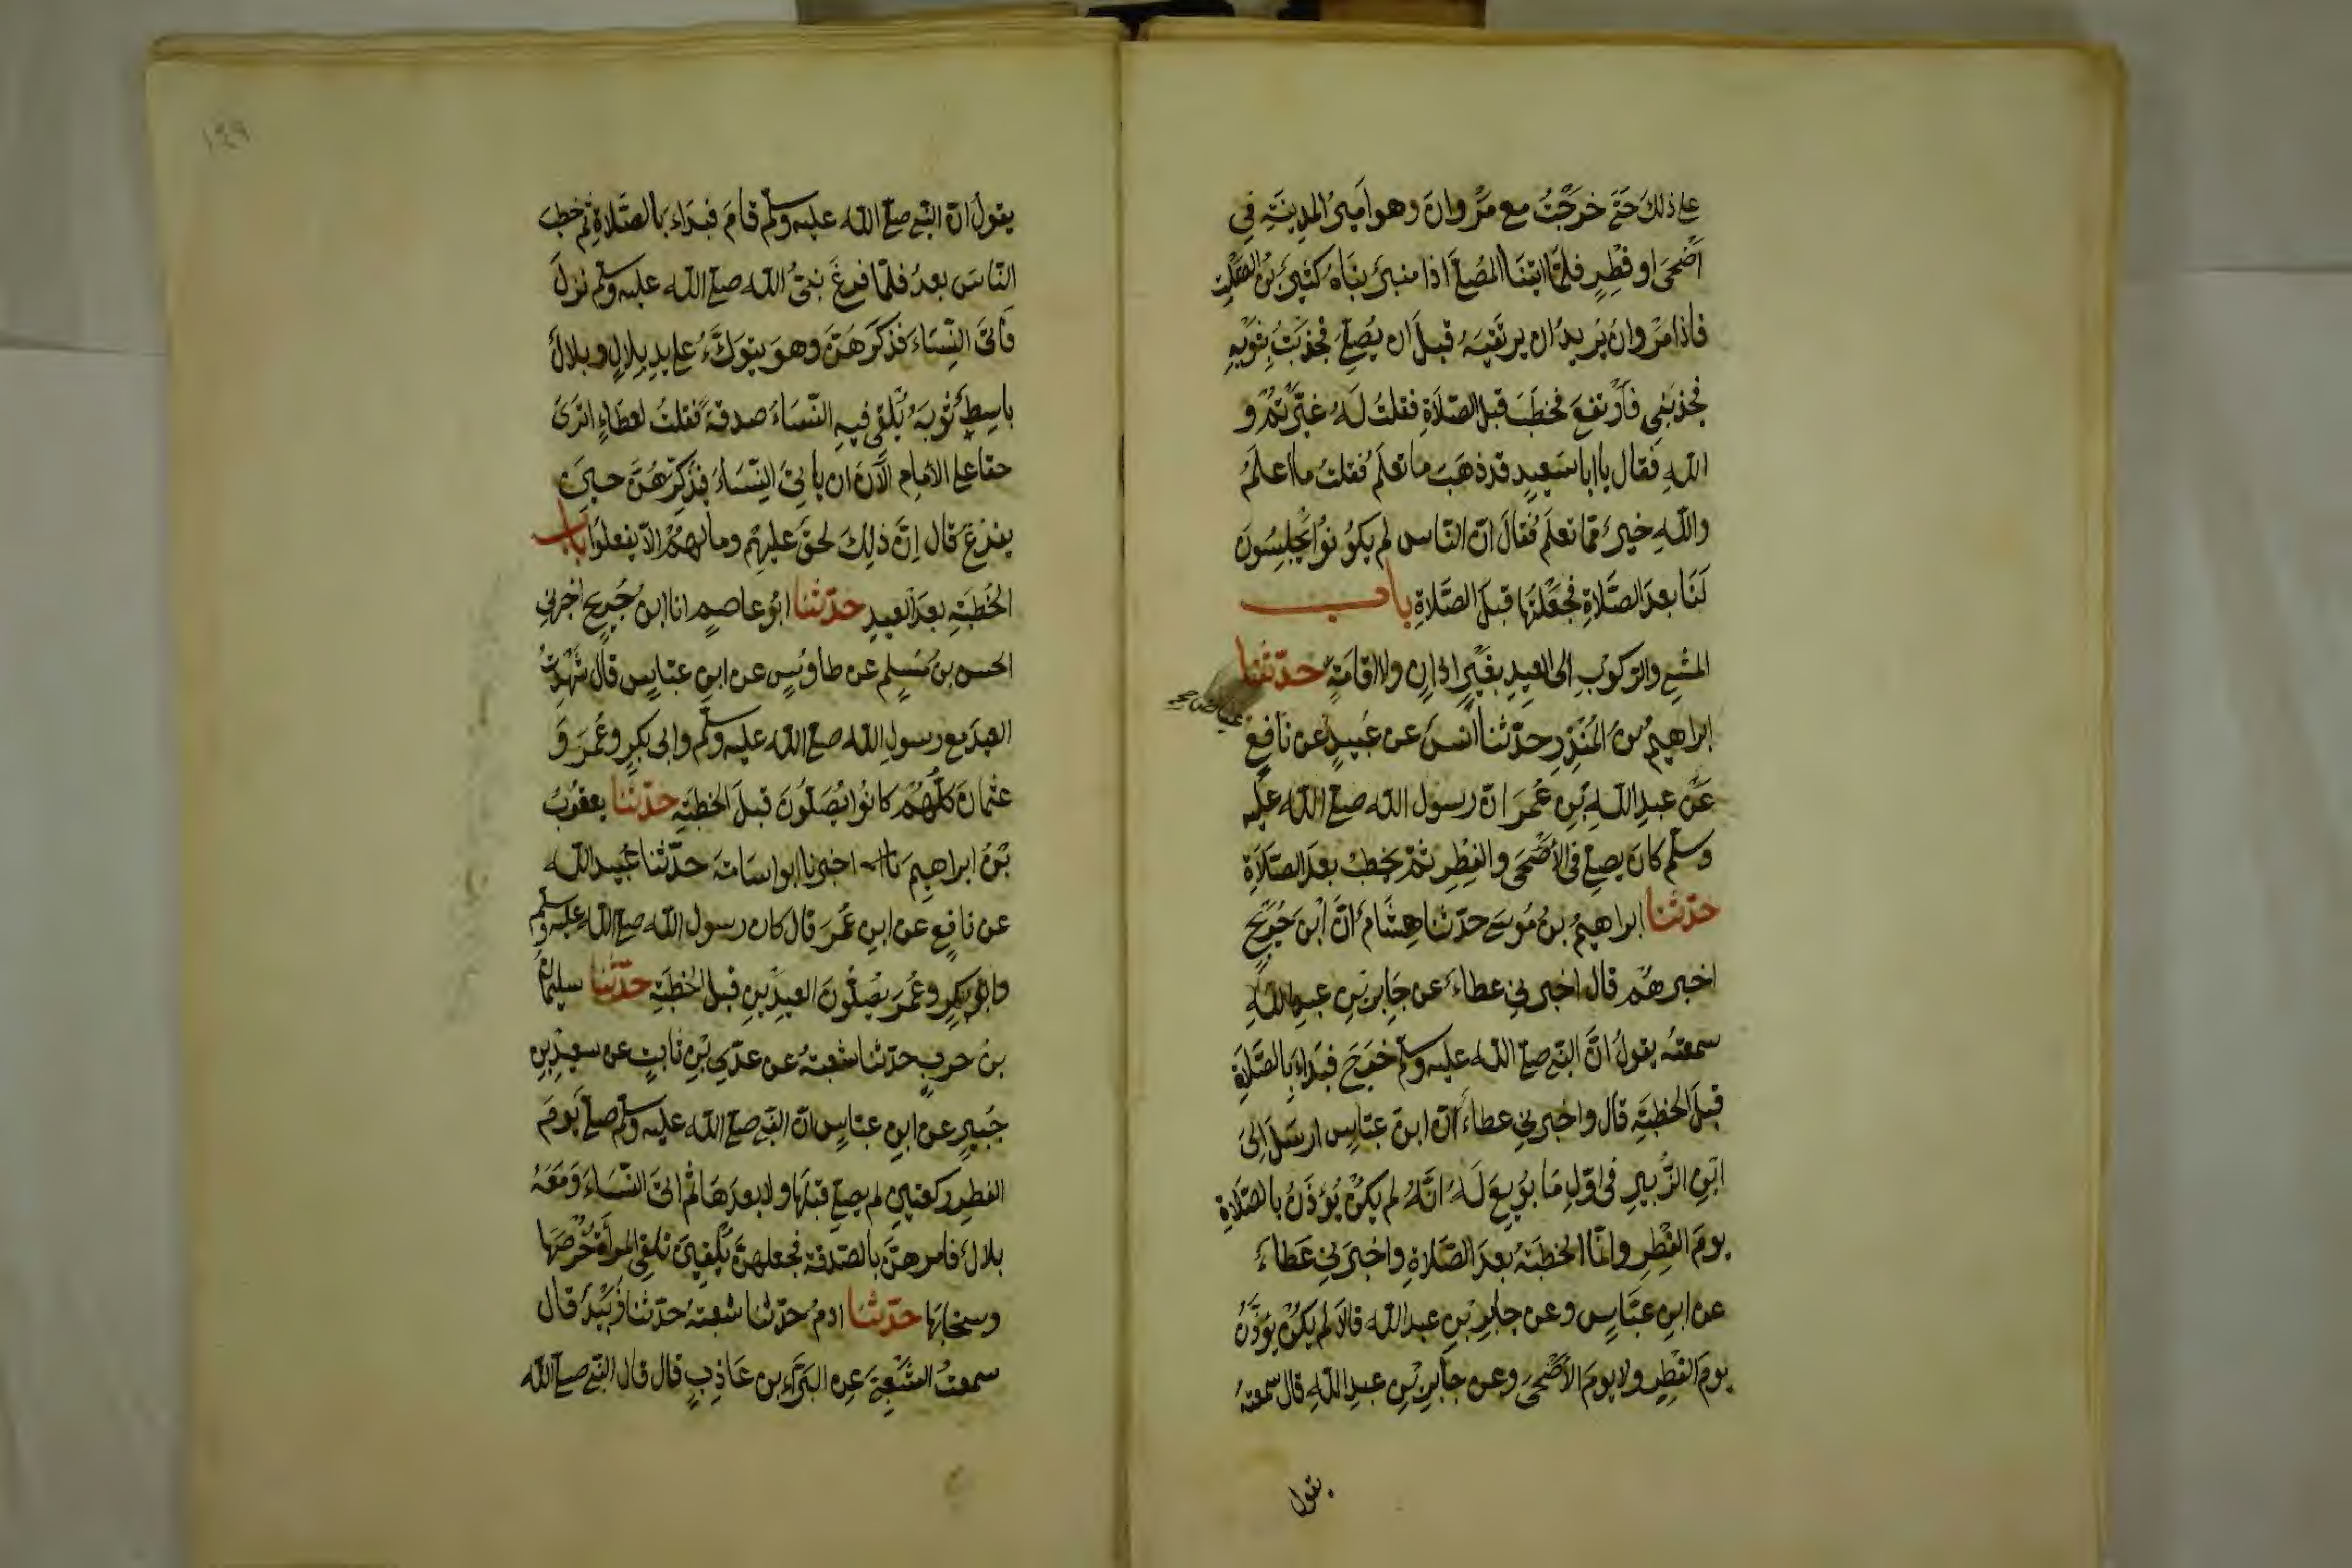 على ذلك حَتّى خرَجْتُ مع مَرْوانَ وهو اَميرُ المدِينَةِ فِي
اَضْحَى او فِطْرٍ فلمّا اتَيْنَا المُصَلَّى اذا منبرٌ بنَاهُ كثيرُ بْنُ الصَّلْتِ
فاذا مَرْوانُ يُريدُ ان يرتَقِيَهُ قبلَ ان يُصَلِّيَ فجَذَبْتُ بثَوْبِهِ
فجذبَنِي فَاَرْتفعَ فخطَبَ قبل الصّلَاةِ فقلتُ لَهُ غيّرْتُمْ و
اللهِ فَقال يا ابا سَعِيدٍ قد ذهَبَ ما تعلَمُ فقلتُ ما اعلَمُ
واللّهِ خيرٌ ممّا تعلَمُ فقالَ انّ النّاسَ لم يكُونُوا يَجْلِسُونَ
لَنَا بعدَ الصّلَاةِ فجَعَلْتُهَا قبلَ الصَّلَاةِ باب
المشْيِ والرّكوبِ الى العيدِ بغَيْرِ اذانٍ ولا اقامَةٍ حدّثنا
ابراهيمُ بنُ المُنْذِرِ حدّثنا انسٌ عن عُبَيدٍ عن نَافِعٍ
عَن عبدِ اللهِ بْنِ عُمَرَ انّ رسول الله صلى الله عليه
وسلم كانَ يصلي في الأَضْحَى والفِطْرِ ثمّ يخطبُ بعدَ الصّلَاةِ
حدّثنا ابراهيمُ بنُ مُوسَى حدّثنا هِشَامٌ انَّ ابْنَ جُرَيْجٍ
اخبرهُمْ قال اخبرني عطاءٌ عن جَابِرِ بْنِ عبدِ اللهِ
سمعتُه يقولُ انَّ النبيّ صلى الله عليه وسلم خرَجَ فبَدَاءَ بالصَّلَاةِ
قبلَ الخطبَةِ قال واخبرني عطاءٌ انّ ابنَ عبّاسٍ ارسَلَ الى
ابْنِ الزُّبيرِ في اوّلِ مَا بُويِعَ لَهُ انَّهُ لم يكُنْ يُؤذَّنُ بالصّلَاةِ
يومَ الفِطْرِ وانّما الخطبَةُ بعدَ الصّلَاةِ واخبرني عَطاءٌ
عن ابنِ عبّاسٍ وعن جابرِ بْنِ عبد الله قالا لم يكُنْ يؤذَّنُ
يومَ الفِطْرِ ولا يومَ الأَضْحَى وعن جَابرِ بْنِ عبدِ اللهِ قال سمعتهُ
يقول
١٤٩
يقولُ انّ النبيّ صلى الله عليه وسلم قامَ فبدَاءَ بالصَّلَاةِ ثم خطب
النّاسَ بعدُ فلمّا فرغَ نبيُّ الله صلى الله عليه وسلم نزلَ
فأتى النِّسَاءَ فذَكّرَهُنَّ وهوَ يتوَكَّءُ على يدِ بِلالٍ وبلالٌ
باسِطٌ ثوبَهُ يُلْقي فيهِ النّسَاءُ صدقةً فقلتُ لعطَاءٍ اترَى
حقا على الأمامِ الآنَ ان يأتيَ النِّسَاءَ فيُذَكِّرَهُنَّ حينَ
يفرُغُ قال إنَّ ذلِكَ لحقٌّ عليهِم ومالهُمْ الّا يفعلُوا باب
الخُطبَةِ بعدَ العيدِ حدّثنا ابُو عاصمٍ انا ابنُ جُريجٍ اخبرني
الحسن بنُ مُسلِمٍ عن طاوُسٍ عن ابنِ عبّاسٍ قال شَهِدْتُ
العيدَ مع رسولِ الله صلى الله عليه وسلم وابي بكرٍ وعُمَرَ وَ
عثمانَ كلُّهُمْ كانُوا يُصَلُّونَ قبلَ الخطبَةِ حدّثنا يعقوبُ
بْنُ ابراهيمَ اخبرنا ابو اسامَةَ حدّثنا عُبيد الله
عن نافعٍ عن ابنِ عُمَرَ قال كان رسول الله صلى الله عليه وسلم
وابُو بكرٍ وعُمَرَ يُصلُّونَ العيدَينِ قبلَ الخطبَةِ حدّثنا سليمانُ
بنُ حربٍ حدّثنا شعبةُ عن عدّي بْنِ ثابتٍ عن سعيدِ بنِ
جُبيرٍ عن ابنِ عبّاسٍ انّ النبيّ صلى الله عليه وسلم صلّى يومَ
الفطرِ ركعتينِ لم يصلّ قبلَها ولا بعدَهَا ثمّ اتى النّسَاءَ وَمَعَهُ
بلالٌ فامرهنَّ بالصّدقة فجعلنَ يُلْقِينَ تلقي المرأةُ خُرْصَهَا
وسخابَهَا حدّثنا ادمُ حدّثنا شعبةُ حدّثنا زُبَيْدٌ قال
سمعتُ الشَّعْبِيَّ عن البَرَاءِ بن عَاذِبٍ قال قال النبيّ صلى الله